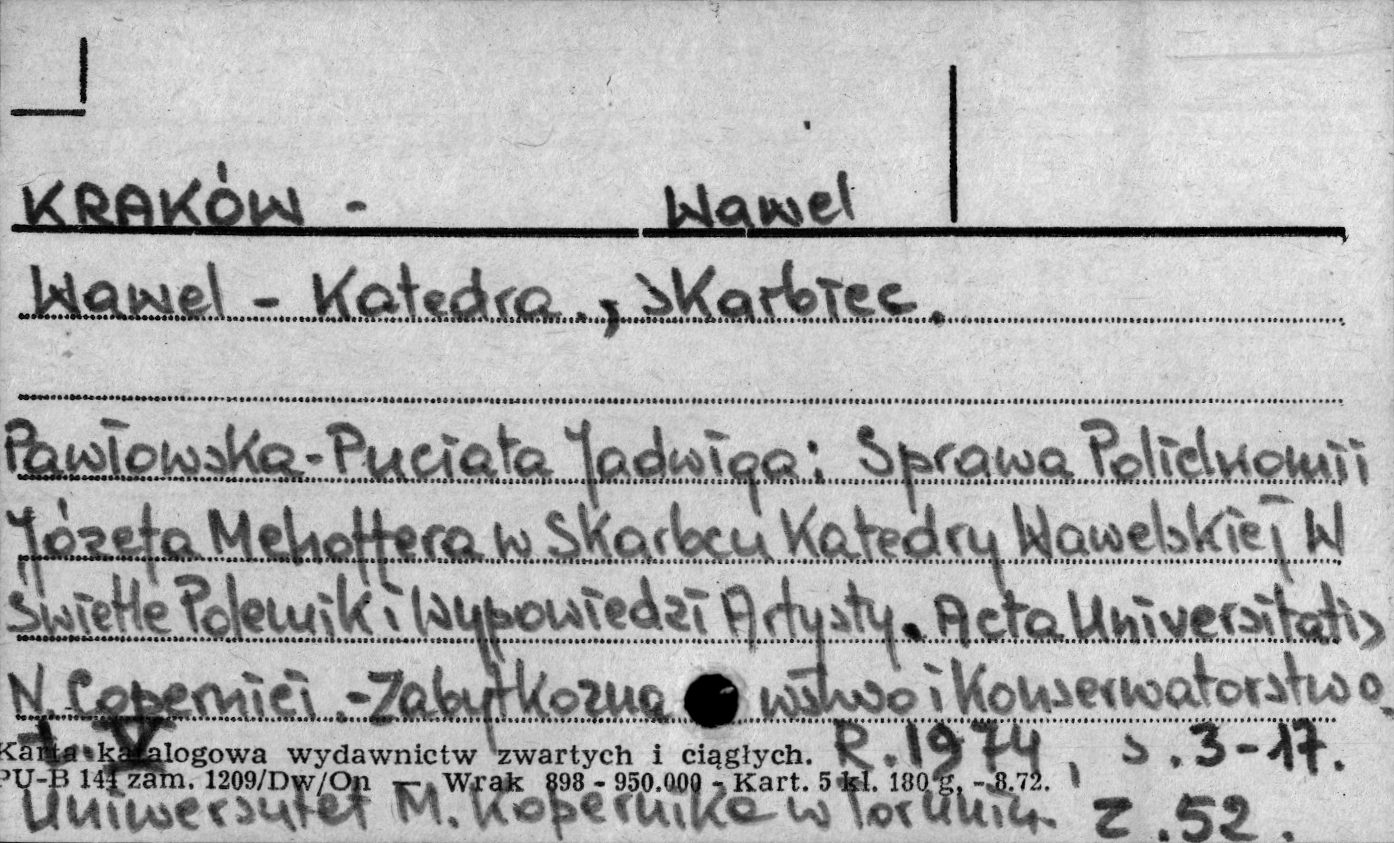 KRAKÓW - Wawel
Wawel - Katedra., Skarbiec.
Pawłowska-Puciata Jadwiga: Sprawa Polichromii
Józefa Mehoffera w Skarbcu Katedry Wawelskiej W
Świetle Polemik i Wypowiedzi Artysty. Acta Universitatis
N. Copernici.-Zabytkozna wstwo i Konserwatorstwo.
t. V R. 1974, s. 3-17.
Karta katalogowa wydawnictw zwartych i ciągłych.
PU-B 141 zam. 1209/Dw/On — Wrak 898 - 950.000 - Kart. 5 kl. 180 g, - 8.72.
Uniwersytet M. Kopernika w Toruniu. z. 52.